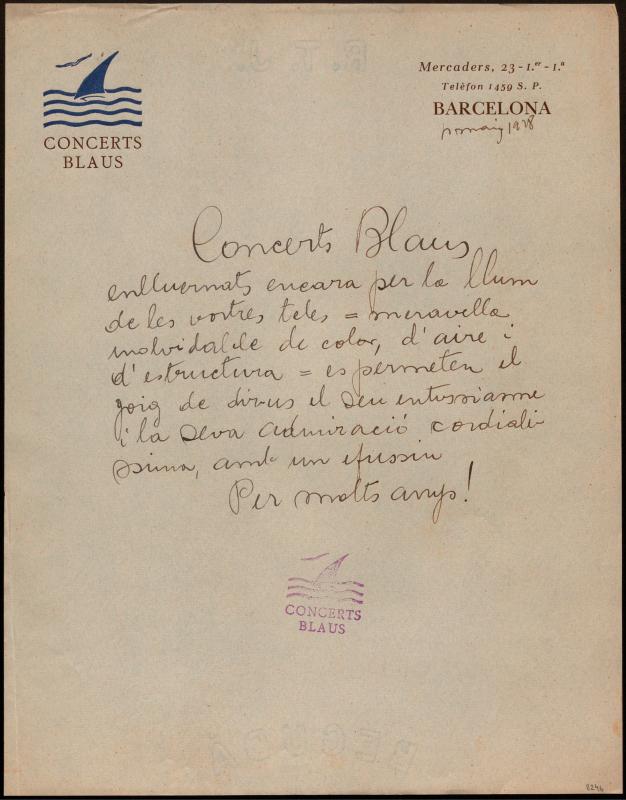 CONCERTS
BLAUS
Mercaders, 23-1.er-1.a
Telèfon 1459 S. P.
BARCELONA
maig 1928
Concerts Blaus
enlluernats encara per la llum
de les vostres teles = meravella
inolvidable de color, d'aire i
d'estructura = es permeten el
goig de dir-vos el seu entussiasme
i la seva admiració cordiali-
ssima, amb un efussiu
Per molts anys!
CONCERTS
BLAUS
8246